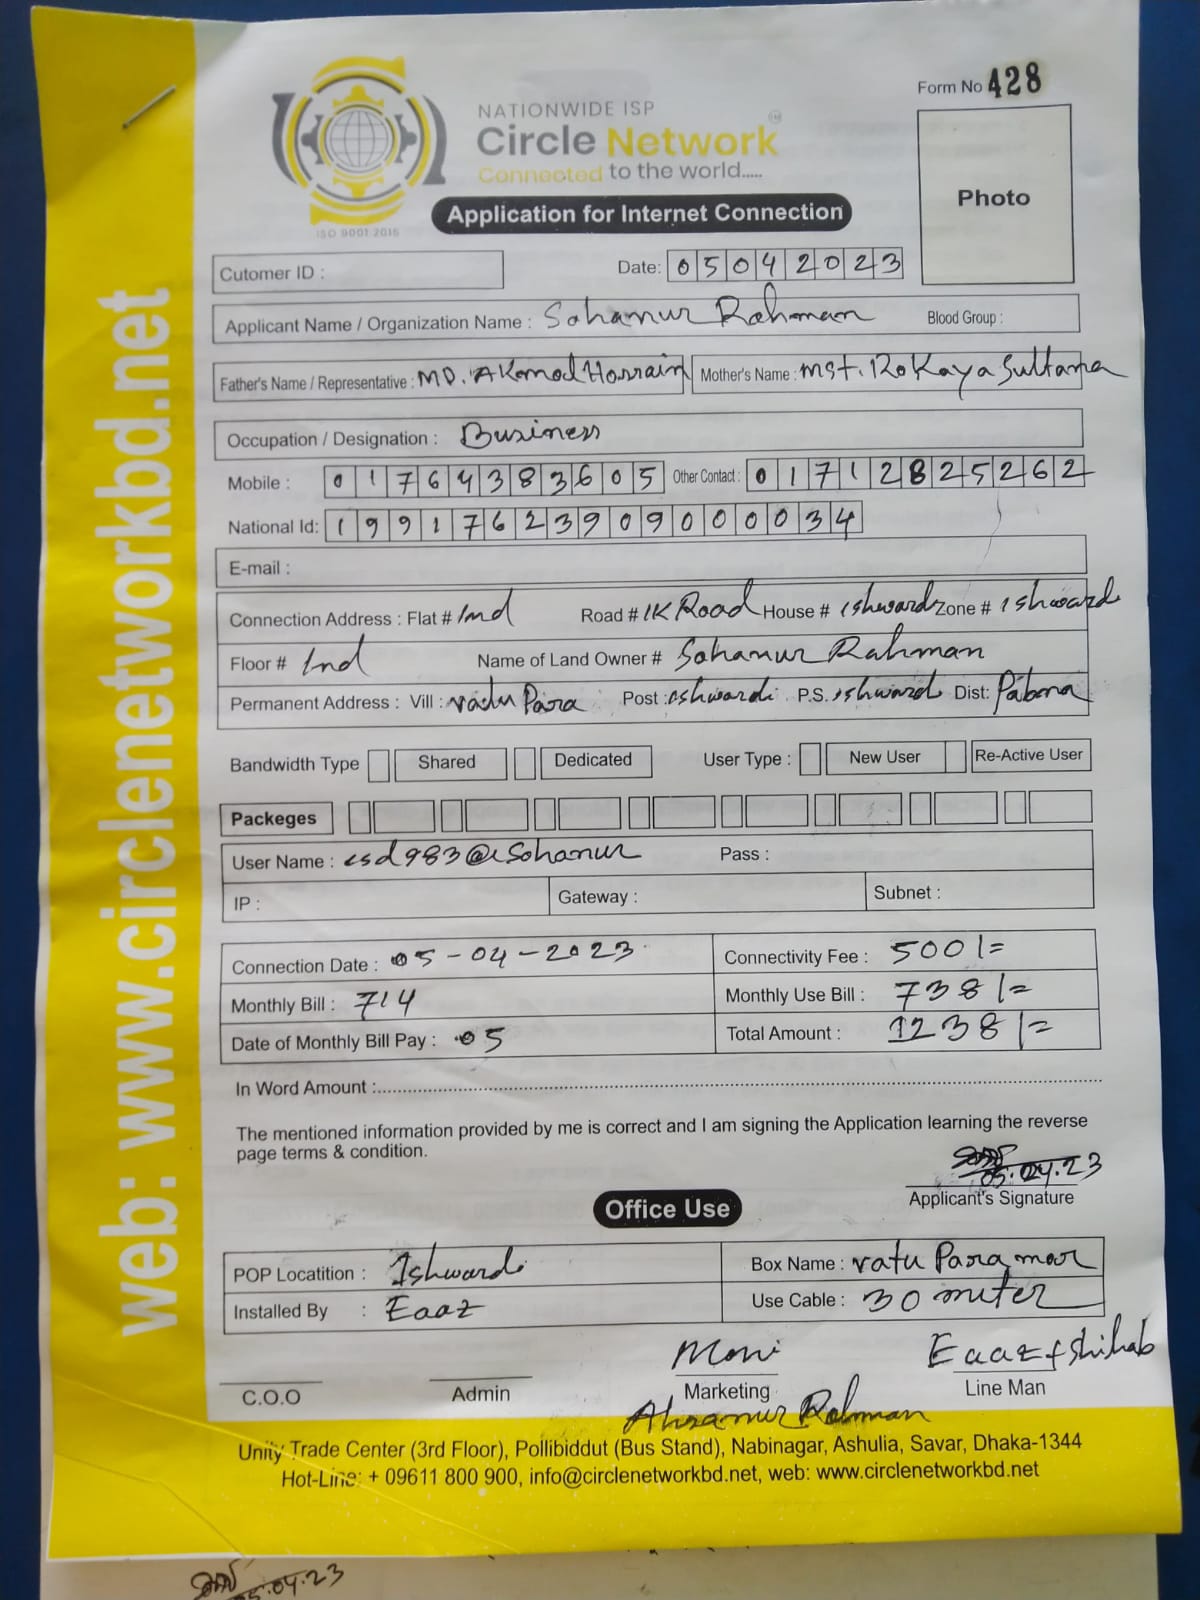 Form No 428
NATIONWIDE ISP
Circle Network
Connected to the world.....
ISO 9001 2015
Application for Internet Connection
Photo
Cutomer ID :
Date: 05042023
Applicant Name / Organization Name : Sohanur Rahman Blood Group :
Father's Name / Representative : MD. AKamal Hossain Mother's Name : Mst. Rokaya Sultana
Occupation / Designation : Business
Mobile : 01764383605 Other Contact : 01712825262
National Id: 19917623909000034
E-mail :
Connection Address : Flat # Ind Road # IK Road House # Ishwardi Zone # Ishwardi
Floor # Ind Name of Land Owner # Sohanur Rahman
Permanent Address : Vill : Para Post : eshwardi P.S. Ishwardi Dist: Pabna
Bandwidth Type Shared Dedicated User Type : New User Re-Active User
Packeges
User Name : esd983@Sohanur Pass :
IP : Gateway : Subnet :
Connection Date : 05-04-2023 Connectivity Fee : 500/=
Monthly Bill : 714 Monthly Use Bill : 738/=
Date of Monthly Bill Pay : 05 Total Amount : 1238/=
In Word Amount :
The mentioned information provided by me is correct and I am signing the Application learning the reverse
page terms & condition.
05.04.23
Applicant's Signature
Office Use
POP Locatition : Ishwardi Box Name : ratu Para mor
Installed By : Eaaz Use Cable : 30 miter
Moni Eaaz + Shihab
C.O.O Admin Marketing Line Man
Ahsanur Rahman
Unity Trade Center (3rd Floor), Pollibiddut (Bus Stand), Nabinagar, Ashulia, Savar, Dhaka-1344
Hot-Line: + 09611 800 900, info@circlenetworkbd.net, web: www.circlenetworkbd.net
web: www.circlenetworkbd.net
05.04.23